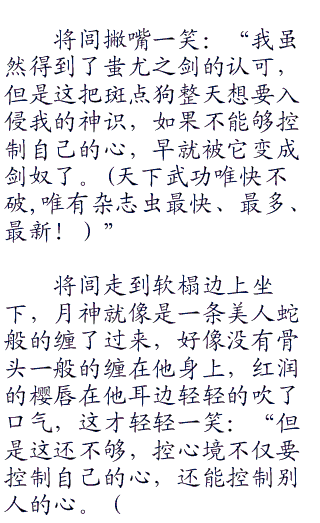 将闾撇嘴一笑：“我虽
然得到了蚩尤之剑的认可，
但是这把斑点狗整天想要入
侵我的神识，如果不能够控
制自己的心，早就被它变成
剑奴了。(天下武功唯快不
破,唯有杂志虫最快、最多、
最新！）”
将闾走到软榻边上坐
下，月神就像是一条美人蛇
般的缠了过来，好像没有骨
头一般的缠在他身上，红润
的樱唇在他耳边轻轻的吹了
口气，这才轻轻一笑：“但
是这还不够，控心境不仅要
控制自己的心，还能控制别
人的心。（